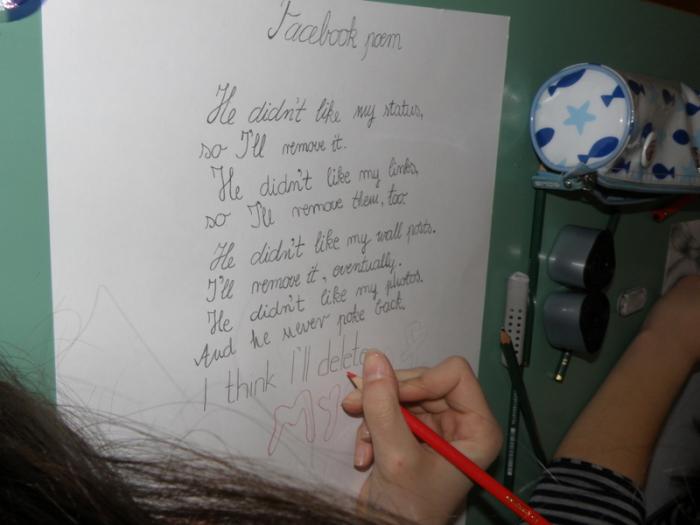 Facebook poem
He didn't like my status,
so I'll remove it.
He didn't like my links,
so I'll remove them, too
He didn't like my wall posts.
I'll remove it, eventually.
He didn't like my photos.
And he never poke back.
I think I'll delete
My